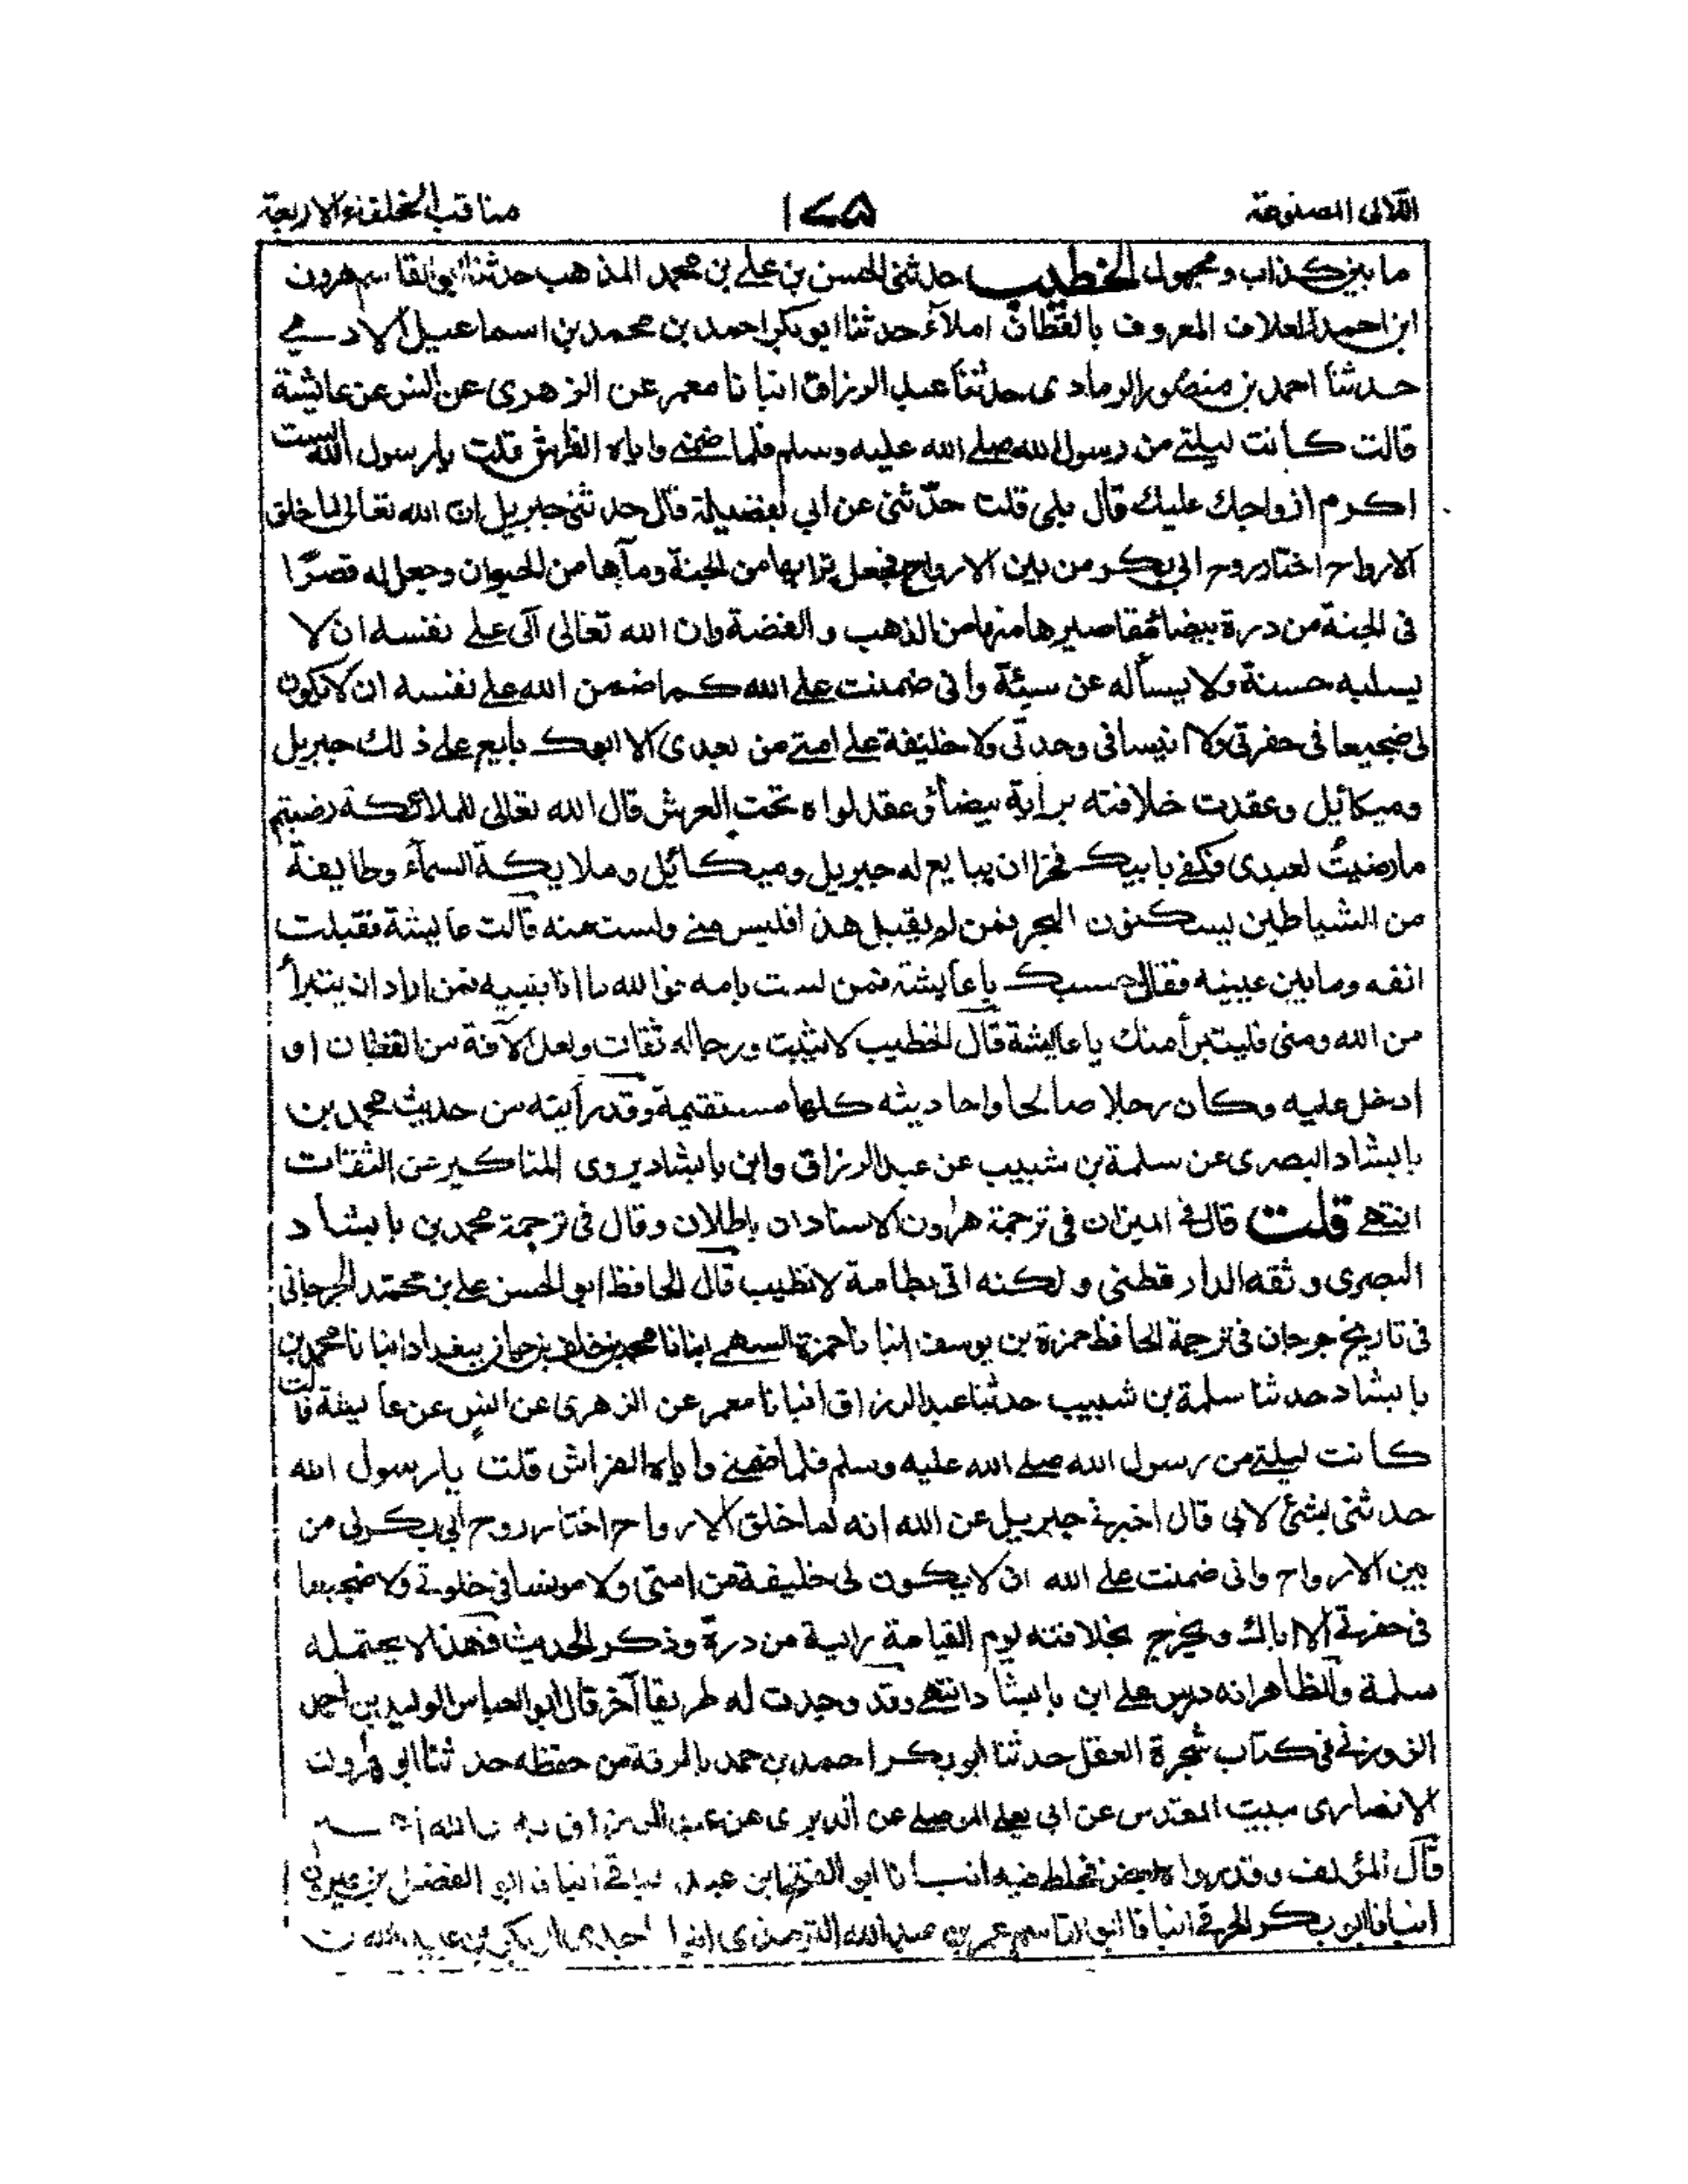 اللآلى المصنوعة
١٧٥
مناقب الخلفاء الاربعة
ما بين كذاب ومجهول الخطيب حدثنى الحسن بن على بن محمد المذهب حدثنا ابو القاسم هرون
ابن احمد العلاف المعروف بالقطان املآء حدثنا ابو بكر احمد بن محمد بن اسماعيل الادمي
حدثنا احمد بن منصور الرمادى حدثنا عبد الرزاق انبانا معمر عن الزهرى عن انس عن عائشة
قالت كانت ليلتے من رسول الله صلے الله عليه وسلم فلما ضمنے واياه الفراش قلت يا رسول الله الست
اكرم ازواجك عليك قال بلى قلت حدّثنى عن ابي بفضيلة قال حدثنى جبريل ان الله تعالى لما خلق
الارواح اختار روح ابى بكر من بين الارواح فجعل ترابها من الجنة ومآءها من الحيوان وجعل له قصرًا
فى الجنة من درة بيضاء مقاصيرها منها من الذهب والفضة وان الله تعالى آلى على نفسه ان لا
يسلبه حسنة ولا يسأله عن سيئة وانى ضمنت على الله كما ضمن الله على نفسه ان لا يكون
لى ضجيعا فى حفرتى ولا انيسا فى وحدتى ولا خليفة على امتے من بعدى الا ابوك بايع على ذلك جبريل
وميكائيل وعقدت خلافته براية بيضاء وعقد لواه تحت العرش قال الله تعالى للملائكة رضيتم
ما رضيتُ لعبدى فكفے بابيك فخرا ان يبايع له جبريل وميكائيل وملايكة السمآء وطايفة
من الشياطين يسكنون البحر فمن لم يقبل هذا فليس منے ولست منه قالت عايشة فقبلت
انفه وما بين عينيه فقال حسبك يا عايشة فمن لست بامه فوالله ما انا بنبيه فمن اراد ان يتبرأ
من الله ومنى فليتبرأ منك يا عايشة قال الخطيب لا يثبت ورجاله ثقات ولعل الآفة من القطان او
ادخل عليه وكان رجلا صالحا واحاديثه كلها مستقيمة وقد رأيته من حديث محمد بن
بابشاد البصرى عن سلمة بن شبيب عن عبد الرزاق وابن بابشاد يروى المناكير عن الثقات
انتهے قلت قال فى الميزان فى ترجمة هارون الاسنادان باطلان وقال فى ترجمة محمد بن بابشاد
البصرى وثقه الدارقطنى ولكنه اتى بطامة لا تطيب قال الحافظ ابو الحسن على بن محمد الجرجانى
فى تاريخ جرجان فى ترجمة الحافظ حمزة بن يوسف انبانا حمزة السهمے انبانا محمد بن خلف بن حيان ببغداد انبانا محمد بن
بابشاد حدثنا سلمة بن شبيب حدثنا عبد الرزاق انبانا معمر عن الزهرى عن انس عن عايشة قالت
كانت ليلتے من رسول الله صلے الله عليه وسلم فلما ضمنے واياه الفراش قلت يا رسول الله
حدثنى بشئ لابى قال اخبرنے جبريل عن الله انه لما خلق الارواح اختار روح ابى بكر لى من
بين الارواح وانى ضمنت على الله ان لا يكون لى خليفة من امتى ولا مونسا فى خلوتے ولا ضجيعا
فى حفرتے الا اباك ويخرج بخلافته يوم القيامة راية من درة وذكر الحديث فهذا لا يحتمله
سلمة والظاهر انه درس على ابن بابشاد انتهے وقد وجدت له طريقا آخر قال ابو العباس الوليد بن احمد
الزوزنے فى كتاب شجرة العقل حدثنا ابو بكر احمد بن حمد بالرقة من حفظه حدثنا ابو هرون
الانصارى ببيت المقدس عن ابى يعلى الموصلے عن الدبرى عن عبد الرزاق به والله
قال المؤلف وقد رواه بعض فخلط فيه انبانا ابو الفتح ابن عبد الباقے انبانا ابو الفضل بن خيرون
انبانا ابو بكر البرقے انبانا ابو القاسم عمر بن عبد الله الترمذى